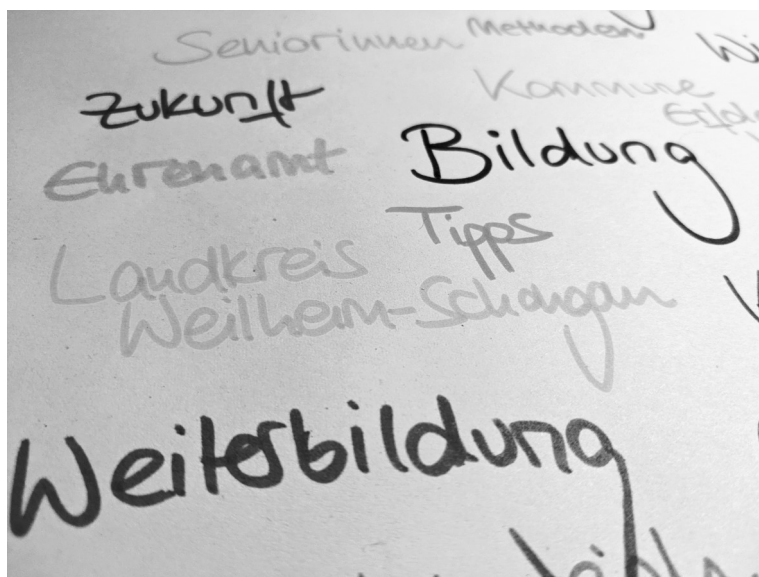 Seniorinnen Methoden
Zukunft Kommune
Ehrenamt Bildung
Tipps
Landkreis
Weilheim-Schongau
Weiterbildung